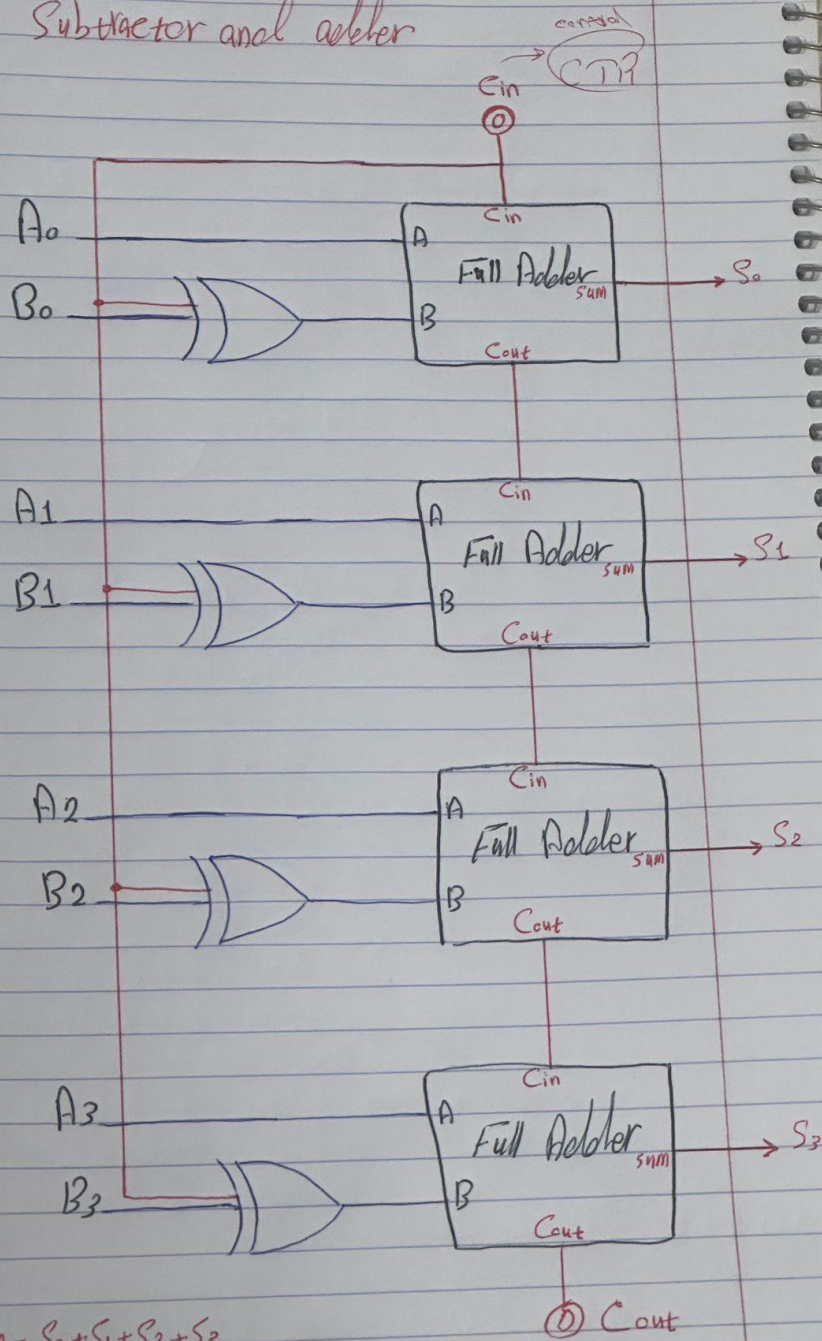 Subtractor and adder
control
CTR
Cin
Cin
A0
A
Full Adder
sum
S0
B0
B
Cout
Cin
A1
A
Full Adder
sum
S1
B1
B
Cout
Cin
A2
A
Full Adder
sum
S2
B2
B
Cout
Cin
A3
A
Full Adder
sum
S3
B3
B
Cout
Cout
S0+S1+S2+S3